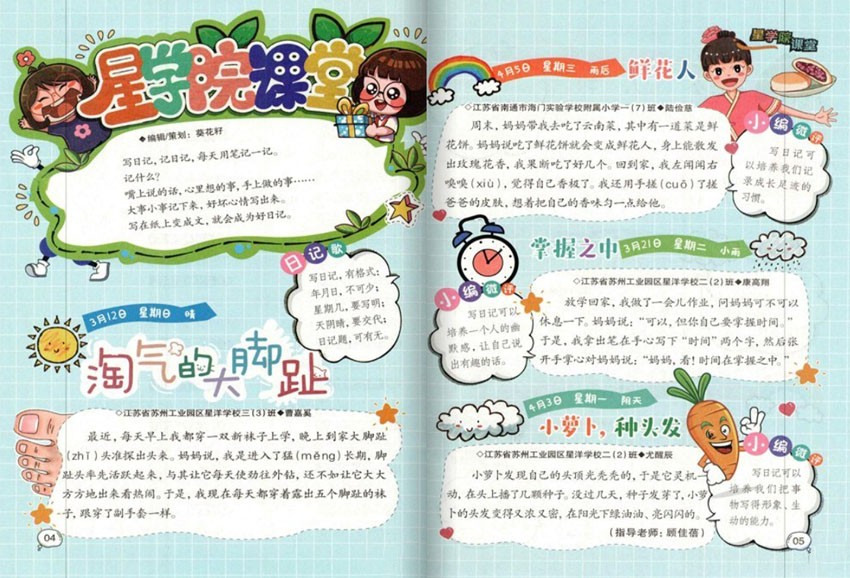 星学院课堂
◆编辑/策划：葵花籽
写日记，记日记，每天用笔记一记。
记什么？
嘴上说的话，心里想的事，手上做的事……
大事小事记下来，好坏心情写出来。
写在纸上变成文，就会成为好日记。
日记歌
写日记，有格式：
年月日，不可少；
星期几，要写明；
天阴晴，要交代；
日记题，可有无。
3月12日 星期日 晴
淘气的大脚趾
◇江苏省苏州工业园区星洋学校三(3)班◆曹嘉奚
最近，每天早上我都穿一双新袜子上学，晚上到家大脚趾
(zhǐ)头准探出头来。妈妈说，我是进入了猛(měng)长期，脚
趾头率先活跃起来，与其让它每天使劲往外钻，还不如让它大大
方方地出来看热闹。于是，我现在每天都穿着露出五个脚趾的袜
子，跟穿了副手套一样。
04
星学院课堂
4月5日 星期三 雨后
鲜花人
◇江苏省南通市海门实验学校附属小学一(7)班◆陆俭慈
周末，妈妈带我去吃了云南菜，其中有一道菜是鲜
花饼。妈妈说吃了鲜花饼就会变成鲜花人，身上能散发
出玫瑰花香，我果断吃了好几个。回到家，我左闻闻右
嗅嗅(xiù)，觉得自己香极了。我还用手搓(cuō)了搓
爸爸的皮肤，想着把自己的香味匀一点给他。
小编微评
写日记可
以培养我们记
录成长足迹的
习惯。
掌握之中
3月21日 星期二 小雨
◇江苏省苏州工业园区星洋学校二(2)班◆康高翔
放学回家，我做了一会儿作业，问妈妈可不可以
休息一下。妈妈说：“可以，但你自己要掌握时间。”
于是，我拿出笔在手心写下“时间”两个字，然后张
开手掌心对妈妈说：“妈妈，看！时间在掌握之中。”
小编微评
写日记可以
培养一个人的幽
默感，让自己说
出有趣的话。
4月3日 星期一 阴天
小萝卜，种头发
◇江苏省苏州工业园区星洋学校二(2)班◆尤醒辰
小萝卜发现自己的头顶光秃秃的，于是它灵机一
动，在头上播了几颗种子。没过几天，种子发芽了，小萝
卜的头发变得又浓又密，在阳光下绿油油、亮闪闪的。
(指导老师：顾佳蓓)
小编微评
写日记可以
培养我们把事
物写得形象、生
动的能力。
05